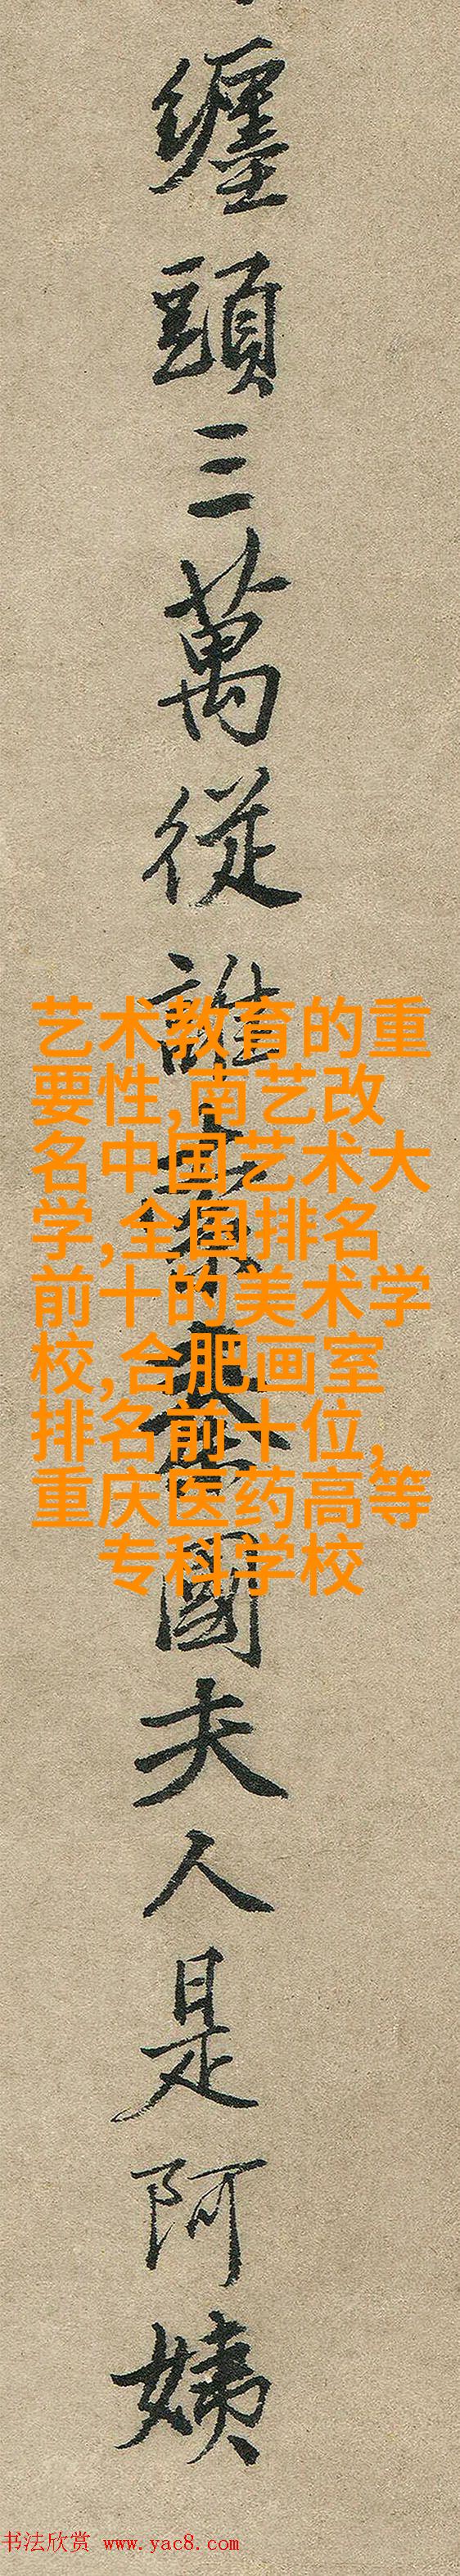 纏頭三萬從誰
國夫人是阿姨
艺术教育的重
要性,南艺改
名中国艺术大
学,全国排名
前十的美术学
校,合肥画室
排名前十位,
重庆医药高等
专科学校
书法欣赏 www.yac8.com